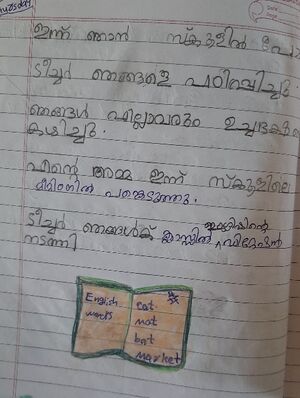 ഇന്ന് ഞാൻ സ്കൂളിൽ പോ
ടീച്ചർ ഞങ്ങളെ പഠിപ്പിച്ചു.
ഞങ്ങൾ എല്ലാവരും
കഴിച്ചു.
എന്റെ അമ്മ ഇന്ന് സ്കൂളിലെ
മീറ്റിങിൽ പങ്കെടുത്തു.
ടീച്ചർ ഞങ്ങൾക്ക് ക്ലാസ്സിൽ
നടത്തി
English
words
cat
mat
bat
market